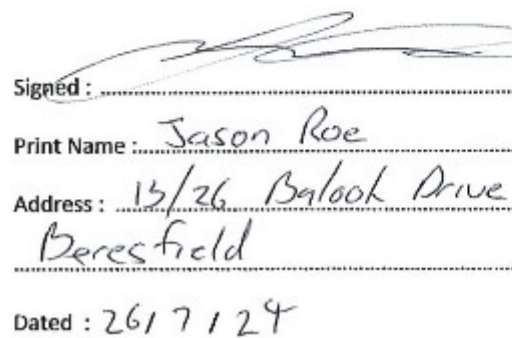 Signed :
Print Name : Jason Roe
Address : 13/26 Balook Drive
Beresfield
Dated : 26/7/24